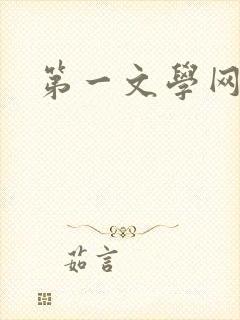 第一文學网
茹言